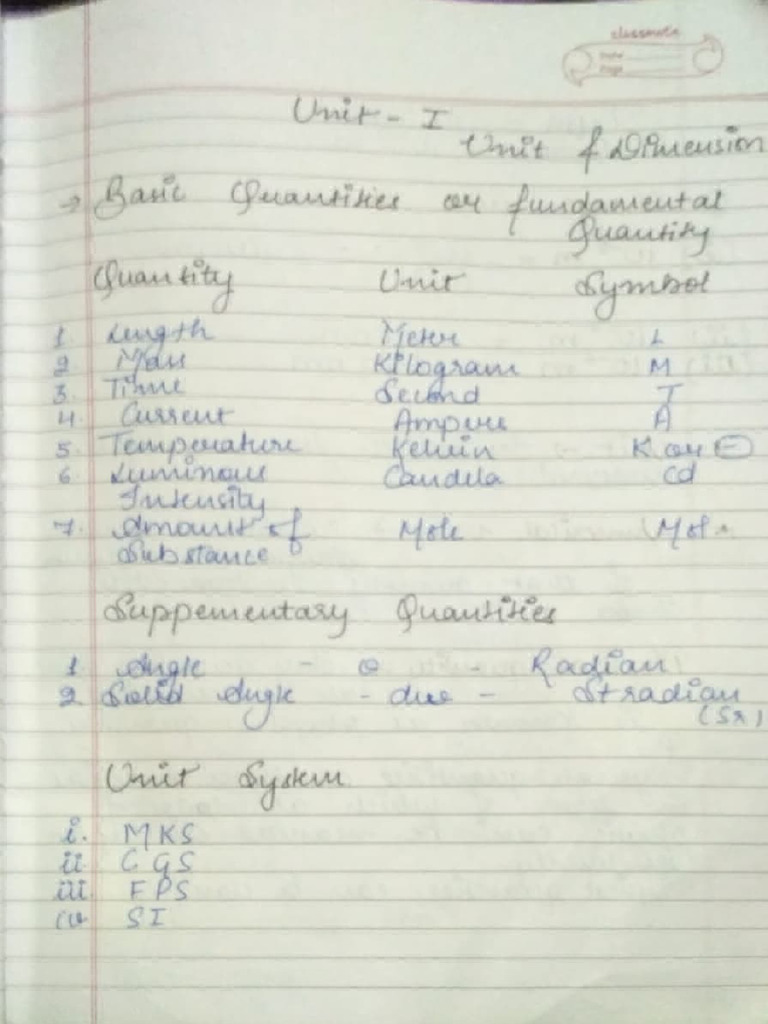 classmate
Date
Page
Unit - I
Unit & Dimension
→ Basic Quantities or fundamental
Quantity
Quantity Unit Symbol
1 Length Meter L
2 Mass Kilogram M
3 Time Second T
4. Current Ampere A
5. Temperature Kelvin K or Θ
6. Luminous Candela Cd
Intensity
7. Amount of Mole Mol.
Substance
Suppementary Quantities
1 Angle - θ - Radian
2 Solid Angle - - Stradian
(Sr)
Unit System
i. MKS
ii. CGS
iii. FPS
iv SI